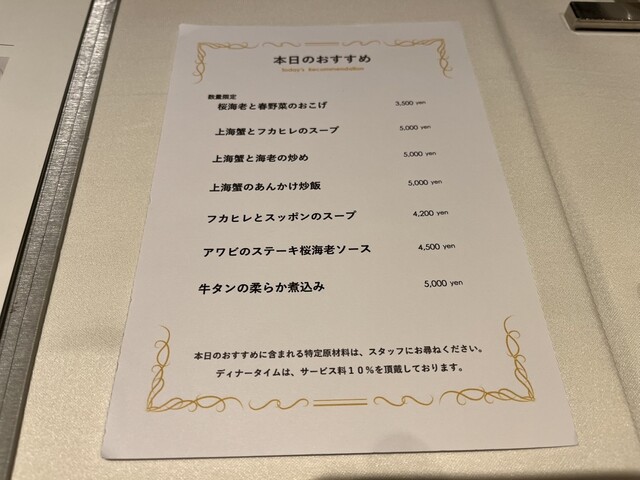 本日のおすすめ
today's Recommendation
数量限定
桜海老と春野菜のおこげ 3,500 yen
上海蟹とフカヒレのスープ 5,000 yen
上海蟹と海老の炒め 5,000 yen
上海蟹のあんかけ炒飯 5,000 yen
フカヒレとスッポンのスープ 4,200 yen
アワビのステーキ桜海老ソース 4,500 yen
牛タンの柔らか煮込み 5,000 yen
本日のおすすめに含まれる特定原材料は、スタッフにお尋ねください。
ディナータイムは、サービス料１０％を頂戴しております。